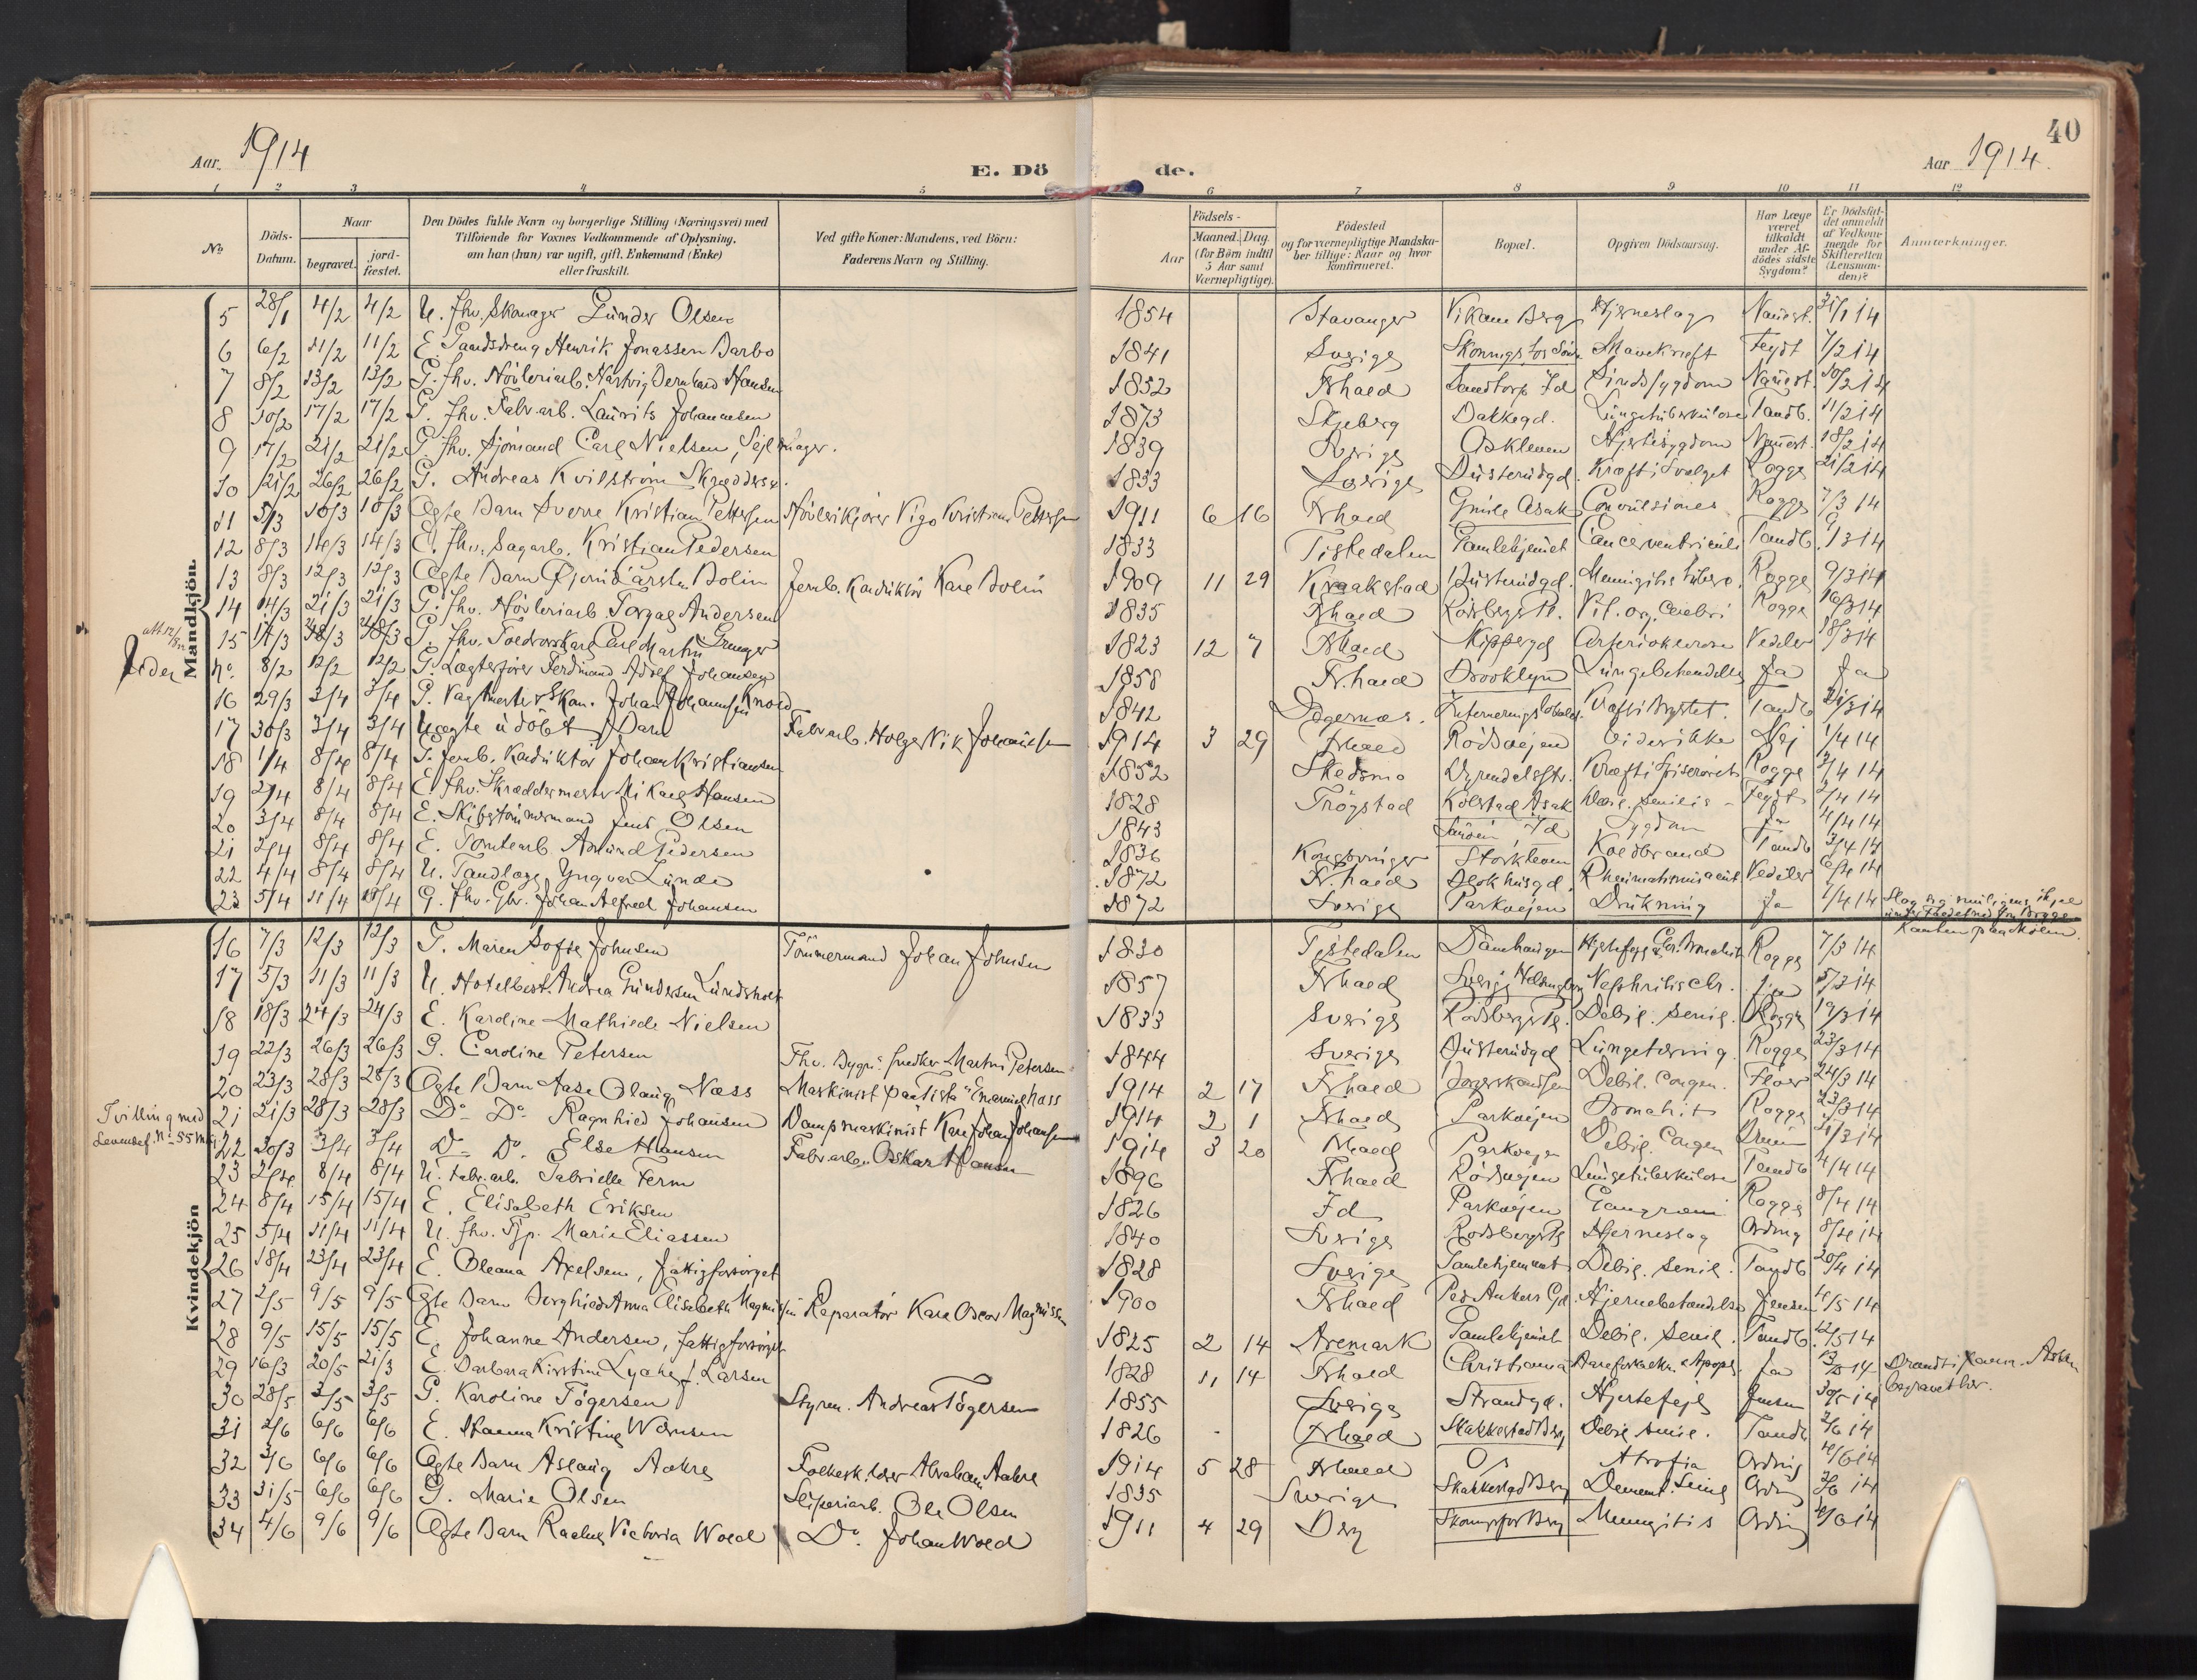 40
Aar. 1914
E. Dö
de.
Aar 1914.
1 2 3 4 5 6 7 8 9 10 11 12
No
Döds-Datum.
Naar
begravet.
jord-fæstet.
Den Dödes fulde Navn og borgerlige Stilling (Næringsvei) med
Tilföiende for Voxnes Vedkommende af Oplysning,
om han (hun) var ugift, gift, Enkemand (Enke)
eller fraskilt.
Ved gifte Koner: Mandens, ved Börn:
Faderens Navn og Stilling.
Födsels-
Aar
Maaned. Dag.
(for Børn indtil
5 Aar samt
Værnepligtige).
Födested
og for værnepligtige Mandska-
ber tillige: Naar og hvor
konfirmeret.
Bopæl.
Opgiven Dödsaarsag.
Har Læge
været
tilkaldt
under Af-
dödes sidste
Sygdom?
Er Dödsfal-
det anmeldt
af Vedkom-
mende for
Skifteretten
(Lensman-
den)?
Anmærkninger.
Mandkjön.
5 28/1 4/2 4/2 U. fhv. Skomager Gunder Olsen 1854 Stavanger Hjerneslag 31/1 14
6 6/2 11/2 11/2 E. Henrik Jonassen Barbo 1841 Sverige Mavekræft Feydt 7/2 14
7 8/2 13/2 13/2 G. fhv. Hövleriarb. Hartvig Bernhard Hansen 1852 Frhald Sandtorp Id Sindssygdom 10/2 14
8 10/2 17/2 17/2 G. fhv. Fabr.arb. Laurits Johannesen 1873 Skjeberg Bakkegd. Lungetuberkulose Tandb. 11/2 14
9 17/2 21/2 21/2 G. fhv. Sjömand Carl Nielsen, Sejlmager. 1839 Sverige Askleven Hjertesygdom 18/2 14
10 21/2 26/2 26/2 G. Andreas Kvilström Skrædder. 1833 Sverige Busterudgd. Kræft i Svælget Rogge 21/2 14
11 5/3 10/3 10/3 Ægte Barn Sverre Kristian Pettersen Hövlerikjörer Vigo Kristian Pettersen 1911 6 16 Frhald Asak Convulsiones Rogge 7/3 14
12 8/3 14/3 14/3 E. fhv. Sagarb. Kristian Pedersen 1833 Tistedalen Gamlehjemet Cancer ventriculi Tandb. 9/3 14
13 8/3 12/3 12/3 Ægte Barn Bolin Jernb. Konduktör Karl Bolin 1909 11 29 Kraakstad Busterudgd. Meningitis Rogge 9/3 14
14 14/3 21/3 21/3 G. fhv. Hövleriarb. Andersen 1835 Frhald Rödsbergs Pl. Vit. org. cerebri Rogge 16/3 14
15 14/3 18/3 18/3 G. fhv. Carl Martin 1823 12 7 Frhald Skippergd Vedeler 18/3 14
No. 8/2 12/2 12/2 G. Lægterförer Ferdinand Adolf Johansen 1858 Fr.hald Brooklyn Ja Ja
16 29/3 3/4 3/4 G. Vagtmester v. Skan. Johan Johannesen Knold 1842 Kræft i Brystet. Tandb 31/3 14
17 30/3 3/4 3/4 Uægte udöbt Barn Fabr.arb. Holger Vik Johannesen 1914 3 29 Frhald Rödsvejen Vides ikke Nej 1/4 14
18 1/4 8/4 8/4 G. Jernb. Konduktör Johan Kristiansen 1852 Skedsmo Kræft i Spiserörets Rogge 2/4 14
19 2/4 8/4 8/4 E. fhv. Skræddermester Mikael Hansen 1828 Trögstad Kölstad Asak Debil. senilis Feydt 2/4 14
20 3/4 8/4 8/4 E. Skibstömmermand Jens Olsen 1843 Id Sygdom Ja 4/4 14
21 2/4 8/4 8/4 E. Tomtearb. Amund Pedersen 1836 Kongsvinger Storkleven Koldbrand Tandb 3/4 14
22 4/4 8/4 8/4 U. Tandlæge Yngvar Lunde 1872 Fr.hald Rheumatismus acut. Vedeler 6/4 14
23 5/4 11/4 11/4 G. fhv. Johan Alfred Johansen 1872 Sverige Parkvejen Drukning Ja 7/4 14
Kvindekjön
16 7/3 12/3 12/3 G. Maren Sofie Johnsen Tömmermand Johan Johnsen 1830 Tistedalen Damhaugen Rogge 7/3 14
17 5/3 11/3 11/3 U. Hotelbest. Andrea Gundersen Lundsholt 1857 Frhald Sverige Helsingborg Nephritis chr. Ja 5/3 14
18 18/3 24/3 24/3 E. Karoline Mathilde Nielsen 1833 Sverige Rödsbergs Pl. Debil. senil. Rogge 19/3 14
19 22/3 26/3 26/3 G. Caroline Petersen Fhv. Bygn. snedker Martin Petersen 1844 Sverige Busterudgd Lungetæring Rogge 23/3 14
20 23/3 28/3 28/3 Ægte Barn Aase Olaug Næss Maskinist paa "Tista" Emanuel Næss 1914 2 17 Frhald Debil. congen. Floer 24/3 14
Tvilling med
21 21/3 28/3 28/3 Do Do Ragnhild Johansen Dampmaskinist Karl Johan Johansen 1914 2 1 Frhald Parkvejen Bronchit Rogge 23/3 14
22 30/3 3/4 3/4 Do Do Else Hansen Fabr.arb. Oskar Hansen 1914 3 20 Frhald Parkvejen Debil. Congen 31/3 14
23 2/4 8/4 8/4 U. Fabr.arb. Gabrielle Ferm 1896 Frhald Rödsvejen Lungetuberkulose Tandb 4/4 14
24 8/4 15/4 15/4 E. Elisabeth Eriksen 1826 Id Parkvejen Gangræn Rogge 8/4 14
25 5/4 11/4 11/4 U. fhv. Tjp. Marie Eliassen 1840 Sverige Rödsbergs Pl Hjerneslag Ording 8/4 14
26 18/4 23/4 23/4 E. Oleana Axelsen, fattigforsörget 1828 Sverige Gamlehjemmet Debil. senil. Tandb 20/4 14
27 2/5 9/5 9/5 Ægte Barn Borghild Anna Elisabeth Magnussen Reparatör Karl Oscar Magnussen 1900 Frhald Ped Ankers Gd. Hjernebetændelse Jensen 4/5 14
28 9/5 15/5 15/5 E. Johanne Andersen, fattigforsörget 1825 2 14 Aremark Gamlehjemt Debil. senil. Tandb. 12/5 14
29 16/3 20/5 21/3 E. Barbara Kirstine Lyche f. Larsen 1828 11 14 Frhald Christiania Aareforkalkn. Apopl. Ja
begravet her.
30 28/5 3/5 3/5 G. Karoline Tögersen Styrm. Andreas Tögersen 1855 Sverige Strandgd. Hjertefejl Jensen 30/5 14
31 2/6 6/6 6/6 E. Hanna Kristine Wernsen 1826 Frhald Skakkestad Berg Debil senil. Tandb 2/6 14
32 3/6 6/6 6/6 Ægte Barn Aslaug Aakre Folkesk.lærer Abraham Aakre 1914 5 28 Frhald Os Atrofia Ording 4/6 14
33 31/5 6/6 6/6 G. Marie Olsen Sliperiarb. Ole Olsen 1835 Sverige Skakkestad Berg Dement. Senil Ording 2/6 14
34 4/6 9/6 9/6 Ægte Barn Rachel Victoria Wold Do. Johan Wold 1911 4 29 Berg Meningitis Ording 4/6 14